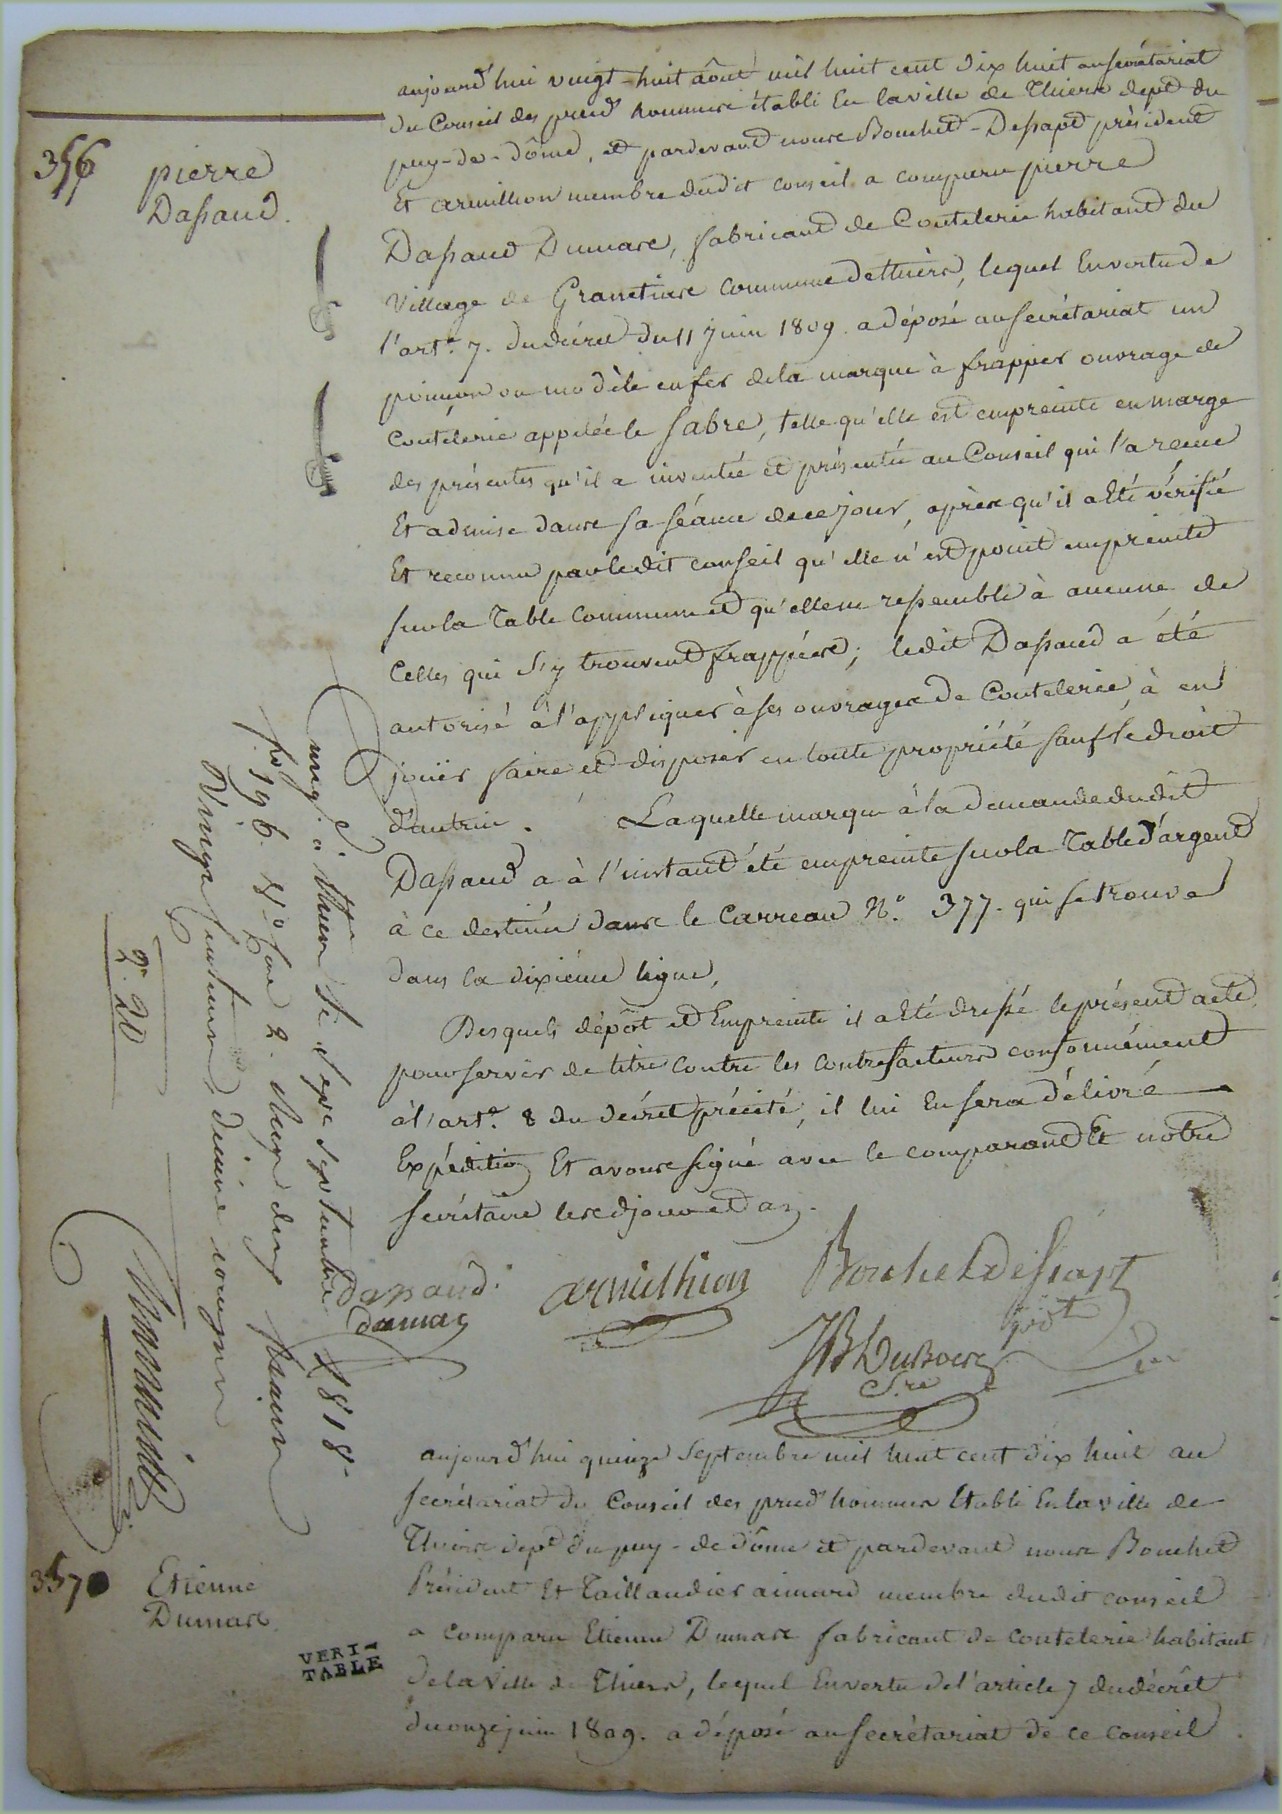 aujourd'hui vingt-huit aôut mil huit cent dix huit au secrétariat
du Conseil des prud'hommes établi en la ville de Thiers dept du
puy-de-dôme, et pardevant nous Bouchet-Dessapt président
356 pierre
Dassaud.
Et armilhon membre dudit conseil a comparu pierre
Dassaud Dumas, fabricant de Coutelerie habitant du
Village de Granetias commune de thiers, lequel En vertu de
l'art. 7. du décret du 11 juin 1809. a déposé au secrétariat un
poinçon ou modèle en fer de la marque à frapper ouvrage de
Coutelerie appelée le Sabre, telle qu'elle est empreinte en marge
des présentes qu'il a inventée et présentée au Conseil qui l'a reçue
Et admise dans sa séance de ce jour, après qu'il a Eté vérifié
Et reconnu par ledit conseil qu'elle n'est point empreinte
sur la Table Commune et qu'elle ne ressemble à aucune de
Celles qui s'y trouvent frappées; ledit Dassaud a été
autorisé à l'appliquer à ses ouvrages de Coutelerie, à en
jouir faire et disposer en toute propriété sauf le droit
d'autrui. Laquelle marque à la demande dudit
Dassaud a à l'instant été empreinte sur la Table d'argent
à ce destinée dans le Carreau N.º 377. qui se trouve
dans la dixième ligne,
Desquels dépôt et Empreinte il a Eté dressé le présent acte
pour servir de titre contre les contrefacteurs conformément
à l'art. 8 du décret précité, il lui En sera délivré
Expédition Et avons signé avec le comparant Et notre
secrétaire lesd jour et an.
Dassaud
dumas
armilhion
Bouchet Dessapt
pdt
JB Dubois
S.re
à thiers le Sept Septembre 1818.
f.º 196. V.º Case 2. Reçu deux francs
Vingt centimes dixième compris
2. 20
aujourd'hui quinze Septembre mil huit cent dix huit au
secrétariat du Conseil des prud'hommes Etabli En la ville de
Thiers dept du puy-de dôme et pardevant nous Bouchet
357 Etienne
Dumas.
VERI-
TABLE
Président Et Taillandier aimard membre dudit conseil
a comparu Etienne Dumas fabricant de coutelerie habitant
de la Ville de Thiers, lequel En vertu de l'article 7 du décrêt
du onze juin 1809. a déposé au secrétariat de ce Conseil